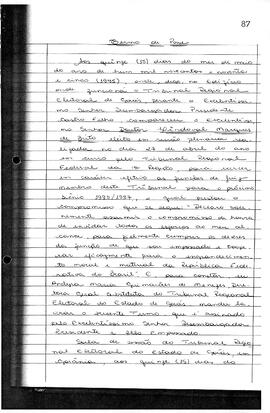 87
Termo de Posse
Aos quinze (15) dias do mês de maio
do ano de hum mil novecentos e noventa
e cinco (1995), nesta
onde funciona o Tribunal Regional
Eleitoral de Goiás, perante o Excelentíssi
mo Senhor Desembargador Presidente
compareceu o excelentíssi
mo Senhor Doutor Lindoval Marques
de Brito, eleito em sessão plenária rea
lizada no dia 24 de abril do ano
em curso pelo Tribunal Regional
Federal da 1ª Região para exercer
em caráter efetivo as funções de juiz
membro deste Tribunal para o próximo
biênio 1995/1997, o qual prestou o
compromisso que se segue: "Declaro sole
nemente assumir o compromisso de honra
de envidar todos os esforços ao meu al
cance para fielmente cumprir os deveres
da função de que sou empossado e traba
lhar eficazmente para o engrandecimento
moral e material da República Fede
rativa do Brasil". E, para constar,
Maria Guimarães de Menezes, Dire
tora Geral substituta do Tribunal Regional
Eleitoral do Estado de Goiás, mandei la
vrar o presente Termo, que é assinado
pelo Excelentíssimo Senhor Desembargador
Presidente e pelo Empossado.
Sala de sessão do Tribunal Regio
nal Eleitoral do Estado de Goiás, em
Goiânia, aos quinze (15) dias do